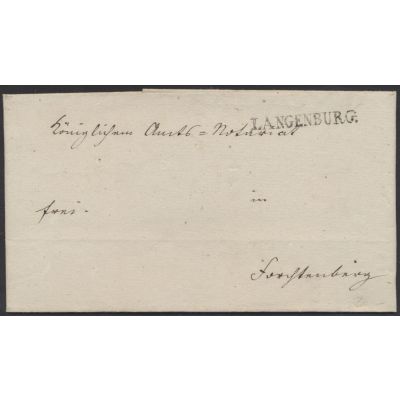 LANGENBURG.
Königlichem Amts=Notariat
in
frei.
Forchtenberg